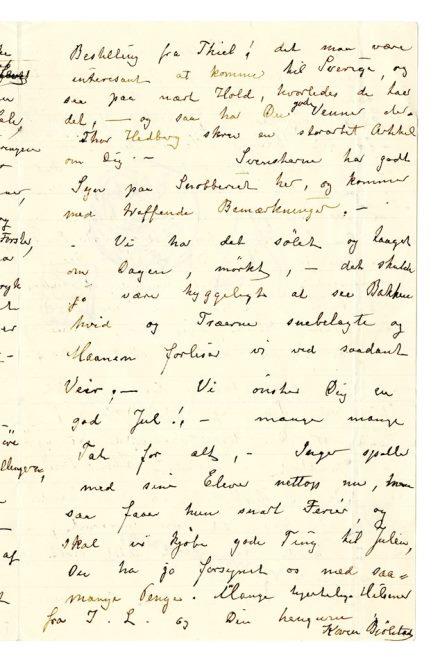 Bestilling fra Thiel! det maa være
interesant at komme til Sverige, og
see paa nært Hold, hvorledes de har
det, — og saa har Du gode Venner der.
Thor Hedberg skrev en storartet Artikkel
om Dig. — Svenskerne har godt
Syn paa Snobberiet her, og kommer
med træffende Bemærkninger. —
- Vi har det sølet og taaget
om Dagen, mørkt, — det skulde
jo være hyggeligt at see Bakken
hvid og Træerne snebelagte og
Maanen forliser vi ved saadant
Veir, — Vi ønsker Dig en
god Jul!, — mange mange
Tak for alt, — Inger spiller
med sine Elever nettop nu, men
saa faaer hun snart Ferier, og
skal vi kjøbe gode Ting til Julen,
Du har jo forsynet os med saa=
mange Penge. Mange hjertelige Hilsner
fra I. L. og Din hengivne
Karen Bjølstad